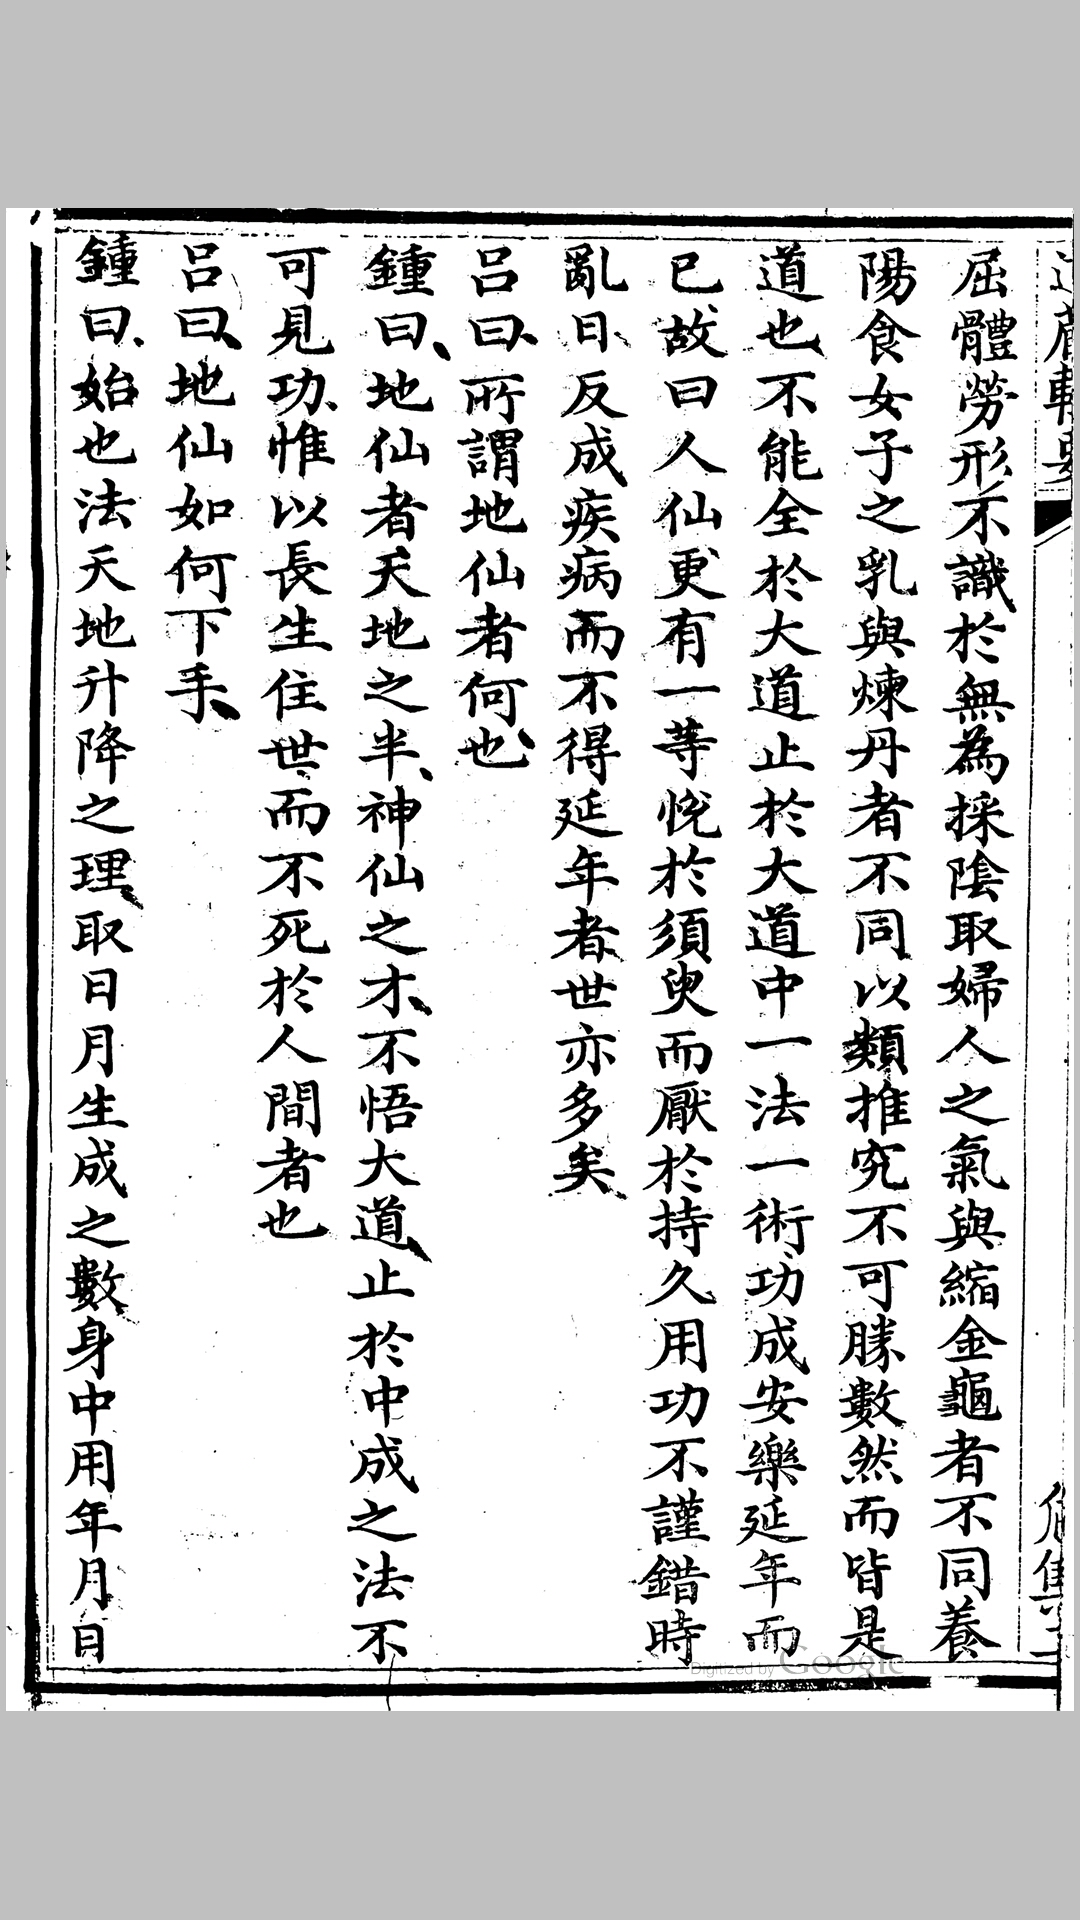 屈體勞形不識於無為採陰取婦人之氣與縮金龜者不同養
陽食女子之乳與煉丹者不同以類推究不可勝數然而皆是
道也不能全於大道止於大道中一法一術功成安樂延年而
已故曰人仙更有一等悅於須臾而厭於持久用功不謹錯時
亂日反成疾病而不得延年者世亦多矣
呂曰所謂地仙者何也
鍾曰地仙者天地之半神仙之才不悟大道止於中成之法不
可見功惟以長生住世而不死於人間者也
呂曰地仙如何下手
鍾曰始也法天地升降之理取日月生成之數身中用年月日
Digitized by Google